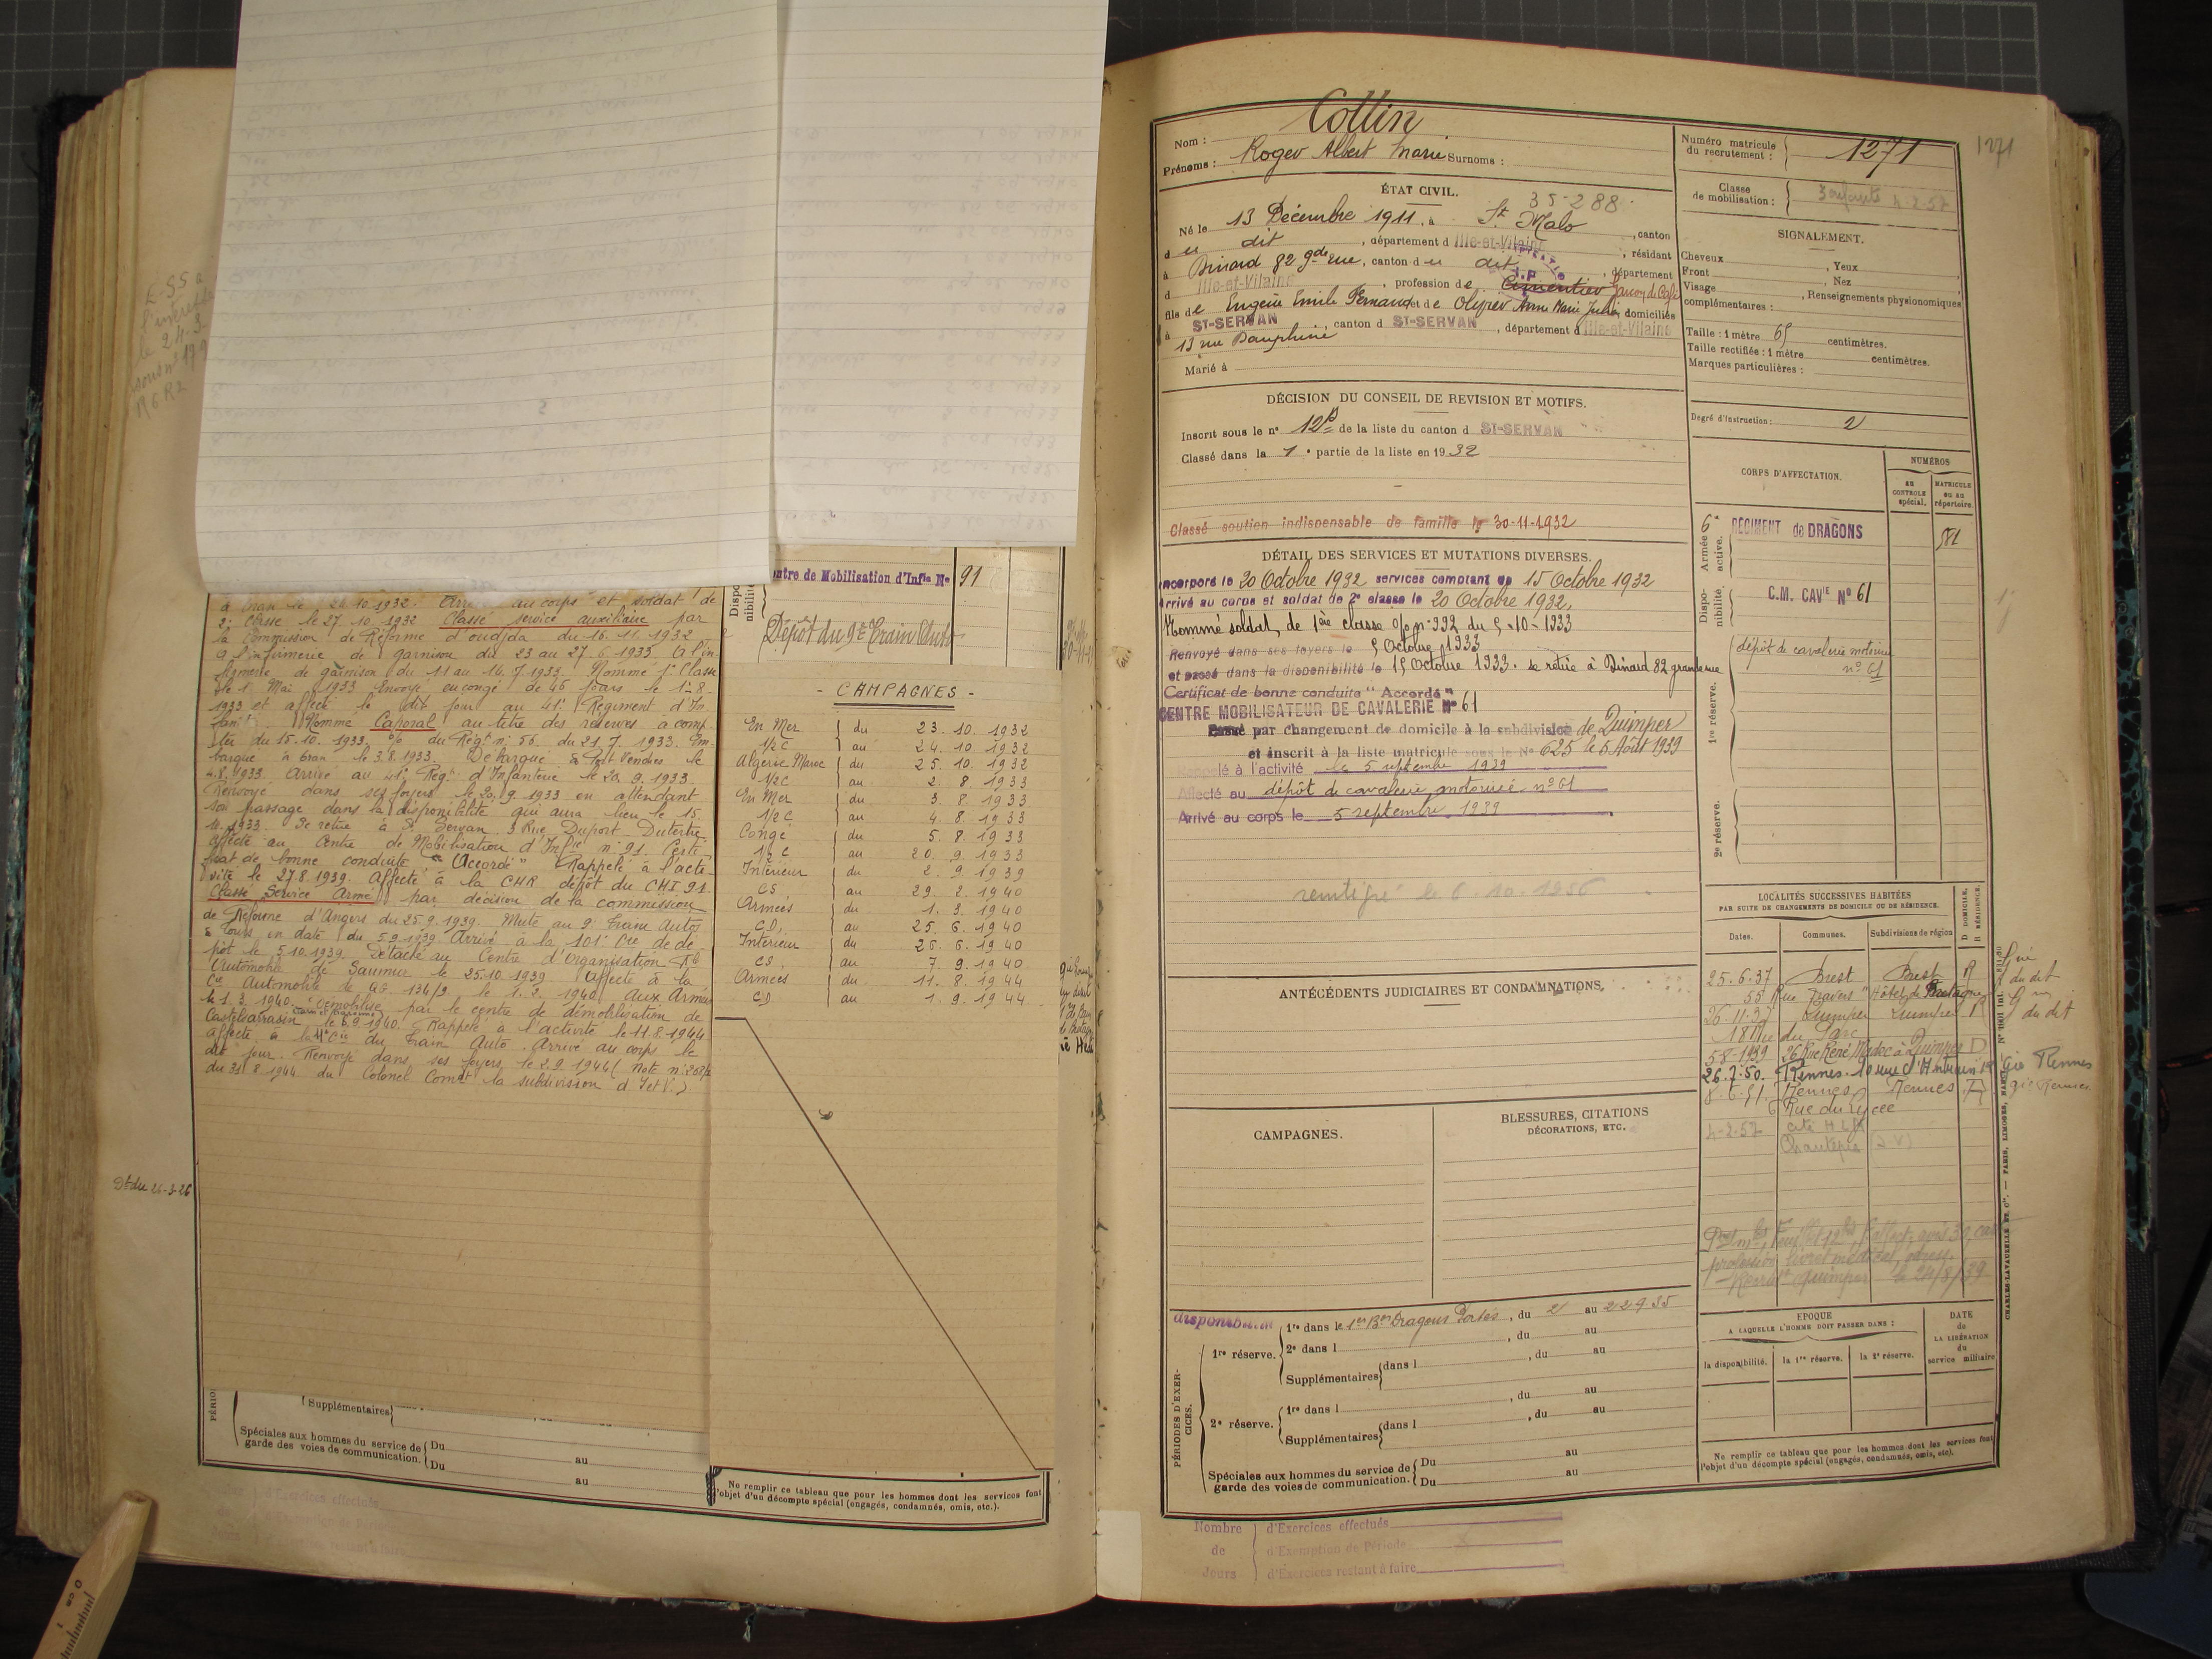 Centre de Mobilisation d'Infie No 91
Dépôt du 9e Train Auto
à Oran le 24.10.1932. au corps et soldat de
2e Classe le 27.10.1932 Classé service auxiliaire par
la Commission de Réforme d'oudjda du 16.11.1932
à l'infirmerie de garnison du 23 au 27.6.1933. à l'in-
firmerie de garnison du 11 au 14.7.1933. Nommé 1e Classe
le 1e Mai 1933 Envoyé en congé de 46 jours le 1.8.
1933 et affecté le dit jour au 41e Régiment d'In
fant. Nommé Caporal au titre des réserves à comp
ter du 15.10.1933. O/o du Régt n: 56 du 21.7.1933. Em-
barqué à Oran le 3.8.1933. Débarqué à Port Vendres le
4.8.1933 Arrivé au 41e Régt d'Infanterie le 20.9.1933
Renvoyé dans ses foyers le 20.9.1933 en attendant
son passage dans la disponibilité qui aura lieu le 15.
10.1933. Se retire à St Servan 3 Rue Duport Dutertre
Affecté au Centre de Mobilisation d'Infie n: 91. Certi
ficat de bonne conduite "Accordé" Rappelé à l'acti
vité le 27.8.1939. Affecté à la CHR dépôt du CMI 91.
Classé Service Armé par décision de la commission
de Réforme d'Angers du 25.9.1939. Muté au 9e Train Autos
à Tours en date du 5.9.1939 Arrivé à la 101e Cie de dé
pôt le 5.10.1939. Détaché au Centre d'Organisation
Automobile de Saumur le 25.10.1939. Affecté à la
Cie Automobile de QG. 134/9 le 1.2.1940. Aux Armées
le 1.3.1940. Démobilisé par le centre de démobilisation de
Castelsarrasin le 6.9.1940. Rappelé à l'activité le 11.8.1944
affecté à la Cie du Train Auto. Arrivé au corps le
dit jour. Renvoyé dans ses foyers le 2.9.1944 (Note n:
du 31.8.1944 du Colonel Comdt la subdivision d'I et V.)
Dt du 26-3-26
- CAMPAGNES -
En Mer du 23.10.1932
1/2 C au 24.10.1932
Algérie Maroc du 25.10.1932
1/2 C au 2.8.1933
En Mer du 3.8.1933
1/2 C au 4.8.1933
Congé du 5.8.1933
1/2 C au 20.9.1933
Intérieur du 2.9.1939
CS au 29.2.1940
Armées du 1.3.1940
CD. au 25.6.1940
Intérieur du 26.6.1940
CS. au 7.9.1940
Armées du 11.8.1944
CD au 1.9.1944
Supplémentaires
Spéciales aux hommes du service de garde des voies de communication. Du au
Du au
Ne remplir ce tableau que pour les hommes dont les services font
l'objet d'un décompte spécial (engagés, condamnés, omis, etc.).
Nom : Collin
Prénoms : Roger Albert Marie Surnoms :
Numéro matricule du recrutement : 1271
1271
Classe de mobilisation : 3 enfants 4-2-57
ÉTAT CIVIL.
35-288
Né le 13 Décembre 1911, à St Malo, canton
d u dit, département d Ille-et-Vilaine, résidant
à Dinard 82 gde rue, canton d u dit, département
d Ille-et-Vilaine, profession de Cimentier Garçon de Café
fils de Eugène Emile Fernand et de Anne Marie domiciliés
à ST-SERVAN, canton d ST-SERVAN, département d Ille-et-Vilaine
13 rue Dauphine
Marié à
SIGNALEMENT.
Cheveux , Yeux
Front , Nez
Visage , Renseignements physionomiques
complémentaires :
Taille : 1 mètre 65 centimètres.
Taille rectifiée : 1 mètre centimètres.
Marques particulières :
Degré d'instruction : 2
DÉCISION DU CONSEIL DE REVISION ET MOTIFS.
Inscrit sous le no de la liste du canton d ST-SERVAN
Classé dans la 1e partie de la liste en 1932
Classé soutien indispensable de famille le 30-11-1932
DÉTAIL DES SERVICES ET MUTATIONS DIVERSES.
Incorporé le 20 Octobre 1932 services comptant du 15 Octobre 1932
Arrivé au corps et soldat de 2e classe le 20 Octobre 1932.
Nommé soldat de 1ère classe o/o no 992 du 5-10-1933
Renvoyé dans ses foyers le 5 Octobre 1933
et passé dans la disponibilité le 15 Octobre 1933. se retire à Dinard 82 grande rue
Certificat de bonne conduite "Accordé"
CENTRE MOBILISATEUR DE CAVALERIE No 61
Passé par changement de domicile à la subdivision de Quimper
et inscrit à la liste matricule sous le No 625 le 5 Août 1939
Rappelé à l'activité le 5 septembre 1939
Affecté au dépôt de cavalerie motorisée no 61
Arrivé au corps le 5 septembre 1939
le 6.10.1956
CORPS D'AFFECTATION.
NUMÉROS
AU CONTROLE spécial.
MATRICULE ou au répertoire.
Armée active.
6e RÉGIMENT de DRAGONS 581
Disponibilité.
C.M. CAVIE No 61
1re réserve.
dépôt de cavalerie motorisée
no 61
2e réserve.
LOCALITÉS SUCCESSIVES HABITÉES
PAR SUITE DE CHANGEMENTS DE DOMICILE OU DE RÉSIDENCE.
Dates. Communes. Subdivisions de région D DOMICILE, R RÉSIDENCE.
25.6.37 Brest Brest R
55 Rue "Hôtel de Bretagne"
26.11.37 Quimper Quimper R du dit
18 Rue du Parc
5-8-1939 26 Rue René Madec à Quimper D
26.7.50. Rennes. 10 rue d'Antrain Gie Rennes
8.6.51. Rennes Rennes D
6 Rue du Lycée
4-2-57 Cité HLM
Chantepie (I V)
ANTÉCÉDENTS JUDICIAIRES ET CONDAMNATIONS.
CAMPAGNES.
BLESSURES, CITATIONS
DÉCORATIONS, ETC.
PÉRIODES D'EXERCICES.
disponibilité
1re réserve. 1re dans le 1er Bon Dragons Portés, du 2 au 22-9-35
2e dans l , du au
Supplémentaires dans l , du au
, du au
2e réserve. 1re dans l , du au
Supplémentaires dans l
Spéciales aux hommes du service de garde des voies de communication. Du au
Du au
EPOQUE
A LAQUELLE L'HOMME DOIT PASSER DANS :
la disponibilité. la 1re réserve. la 2e réserve.
DATE de LA LIBÉRATION du service militaire
Ne remplir ce tableau que pour les hommes dont les services font
l'objet d'un décompte spécial (engagés, condamnés, omis, etc).
CHARLES-LAVAUZELLE ET Cie. — PARIS, LIMOGES, NANCY
Nombre de Jours
d'Exercices effectués
d'Exemption de Période
d'Exercices restant à faire